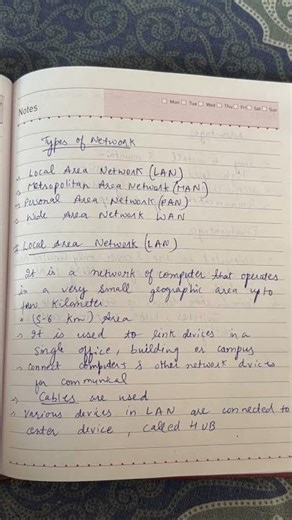 Notes
Mon Tue Wed Thu Fri Sat Sun
Types of Network
Local Area Network (LAN)
Metropolitan Area Network (MAN)
Personal Area Network (PAN)
Wide Area Network WAN
Local Area Network (LAN)
It is a network of computer that operates
in a very small geographic area upto
few Kilometer
(5-6 km) Area
It is used to link devices in a
single office, building or campus
connect computers & other network drices
for communical
Cables are used
Various devices in LAN are connected to
center device, called HUB